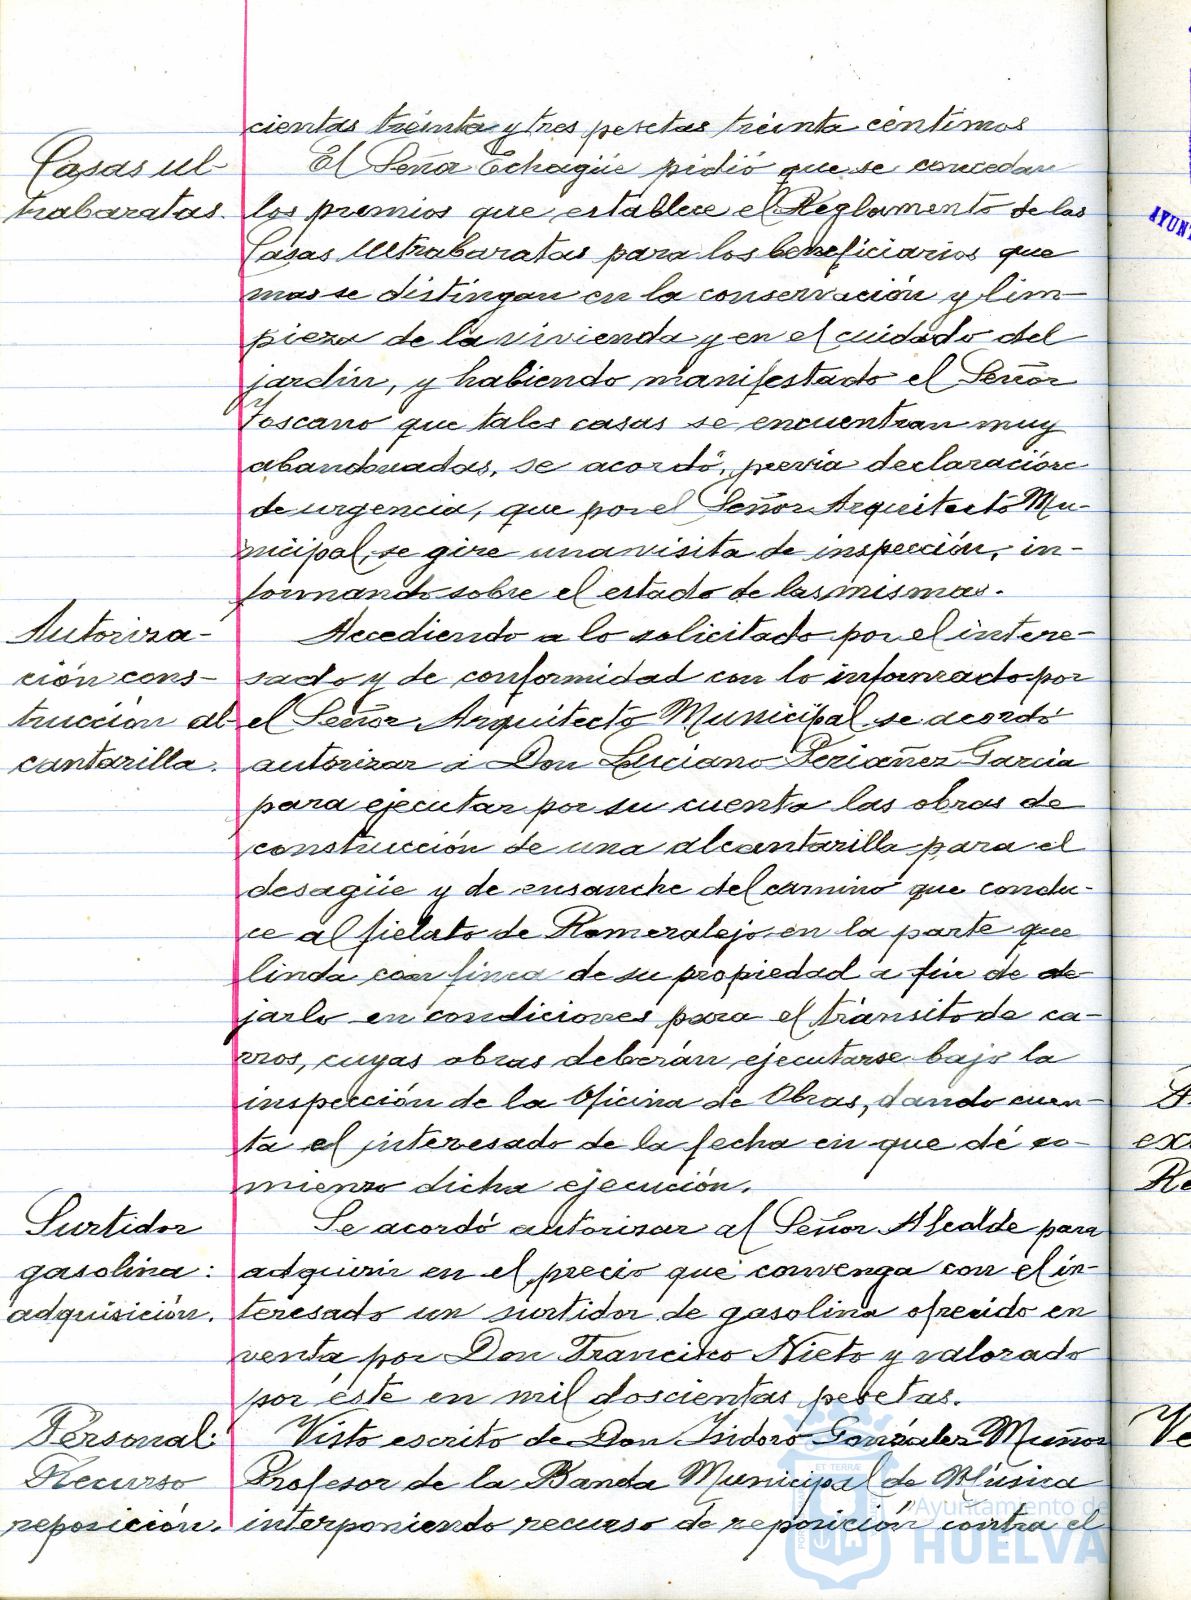 cientas treinta y tres pesetas treinta céntimos
Casas ul-
trabaratas.
El Señor Echagüe pidió que se concedan
los premios que establece el Reglamento de las
Casas Ultrabaratas para los beneficiarios que
mas se distingan en la conservación y lim-
pieza de la vivienda y en el cuidado del
jardín, y habiendo manifestado el Señor
Toscano que tales casas se encuentran muy
abandonadas, se acordó, previa declaración
de urgencia, que por el Señor Arquitecto Mu-
nicipal, se gire una visita de inspección, in-
formando sobre el estado de las mismas.
Autoriza-
ción cons-
trucción al-
cantarilla.
Accediendo a lo solicitado por el intere-
sado y de conformidad con lo informado por
el Señor Arquitecto Municipal se acordó
autorizar á Don Luciano Periañez Garcia
para ejecutar por su cuenta las obras de
construcción de una alcantarilla para el
desagüe y de ensanche del camino que condu-
ce al fielato de Romeralejo en la parte que
linda con finca de su propiedad a fin de de-
jarlo en condiciones para el tránsito de ca-
rros, cuyas obras deberán ejecutarse bajo la
inspección de la Oficina de Obras, dando cuen-
ta el interesado de la fecha en que dé co-
mienzo dicha ejecución.
Surtidor
gasolina:
adquisición.
Se acordó autorizar al Señor Alcalde para
adquirir en el precio que convenga con el in-
teresado un surtidor de gasolina ofrecido en
venta por Don Francisco Nieto y valorado
por éste en mil doscientas pesetas.
Personal:
Recurso
reposición.
Visto escrito de Don Isidoro González Muñoz
Profesor de la Banda Municipal de Música
interponiendo recurso de reposición contra el
AYUNT
ex
Re
Ve
Ayuntamiento de
HUELVA